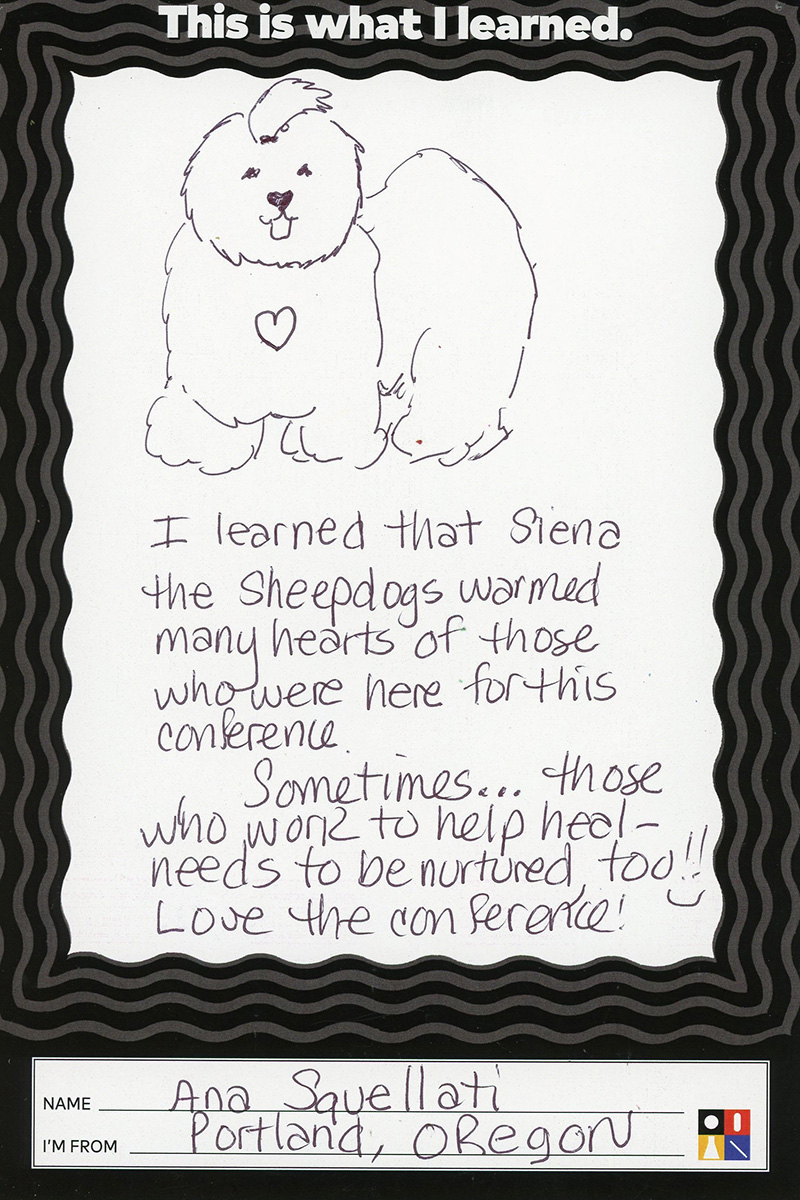 This is what I learned.
I learned that Siena
the Sheepdogs warmed
many hearts of those
who were here for this
conference.
Sometimes... those
who work to help heal-
needs to be nurtured, too!!
Love the conference!
NAME Ana Squellati
I'M FROM Portland, OREgON